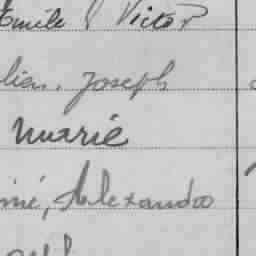 Emile Victor
lien, Joseph
Marie
mé, Alexandre